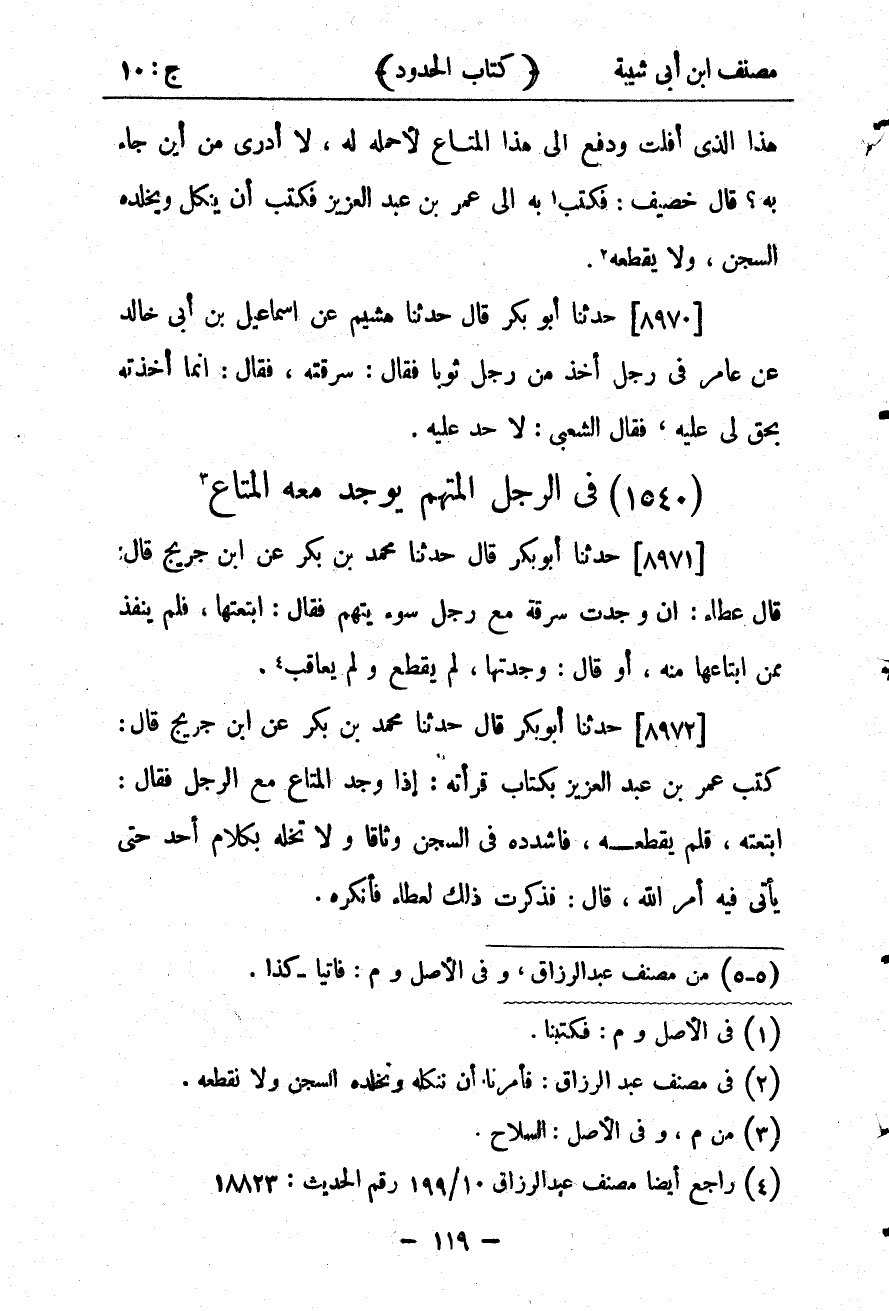 مصنف ابن أبى شيبة ﴿ كتاب الحدود ﴾ ج : ١٠
هذا الذى أفلت ودفع الى هذا المتاع لأحمله له ، لا أدرى من أين جاء
به ؟ قال خصيف : فكتب١ به الى عمر بن عبد العزيز فكتب أن ينكل ويخلده
السجن ، ولا يقطعه٢ .
[٨٩٧٠] حدثنا أبو بكر قال حدثنا هشيم عن اسماعيل بن أبى خالد
عن عامر فى رجل أخذ من رجل ثوبا فقال : سرقته ، فقال : انما أخذته
بحق لى عليه ، فقال الشعبى : لا حد عليه .
(١٥٤٠) فى الرجل المتهم يوجد معه المتاع٣
[٨٩٧١] حدثنا أبوبكر قال حدثنا محمد بن بكر عن ابن جريج قال :
قال عطاء : ان وجدت سرقة مع رجل سوء يتهم فقال : ابتعتها ، فلم ينفذ
ممن ابتاعها منه ، أو قال : وجدتها ، لم يقطع و لم يعاقب٤ .
[٨٩٧٢] حدثنا أبوبكر قال حدثنا محمد بن بكر عن ابن جريج قال :
كتب عمر بن عبد العزيز بكتاب قرأته : إذا وجد المتاع مع الرجل فقال :
ابتعته ، قلم يقطعـــه ، فاشدده فى السجن وثاقا و لا تخله بكلام أحد حتى
يأتى فيه أمر الله ، قال : فذكرت ذلك لعطاء فأنكره .
(٥-٥) من مصنف عبدالرزاق ، و فى الأصل و م : فاتيا ـ كذا .
(١) فى الأصل و م : فكتبنا .
(٢) فى مصنف عبد الرزاق : فأمرنا أن ننكله ونخلده السجن ولا نقطعه .
(٣) من م ، و فى الأصل : السلاح .
(٤) راجع أيضا مصنف عبدالرزاق ١٠/١٩٩ رقم الحديث : ١٨٨٢٣
- ١١٩ -